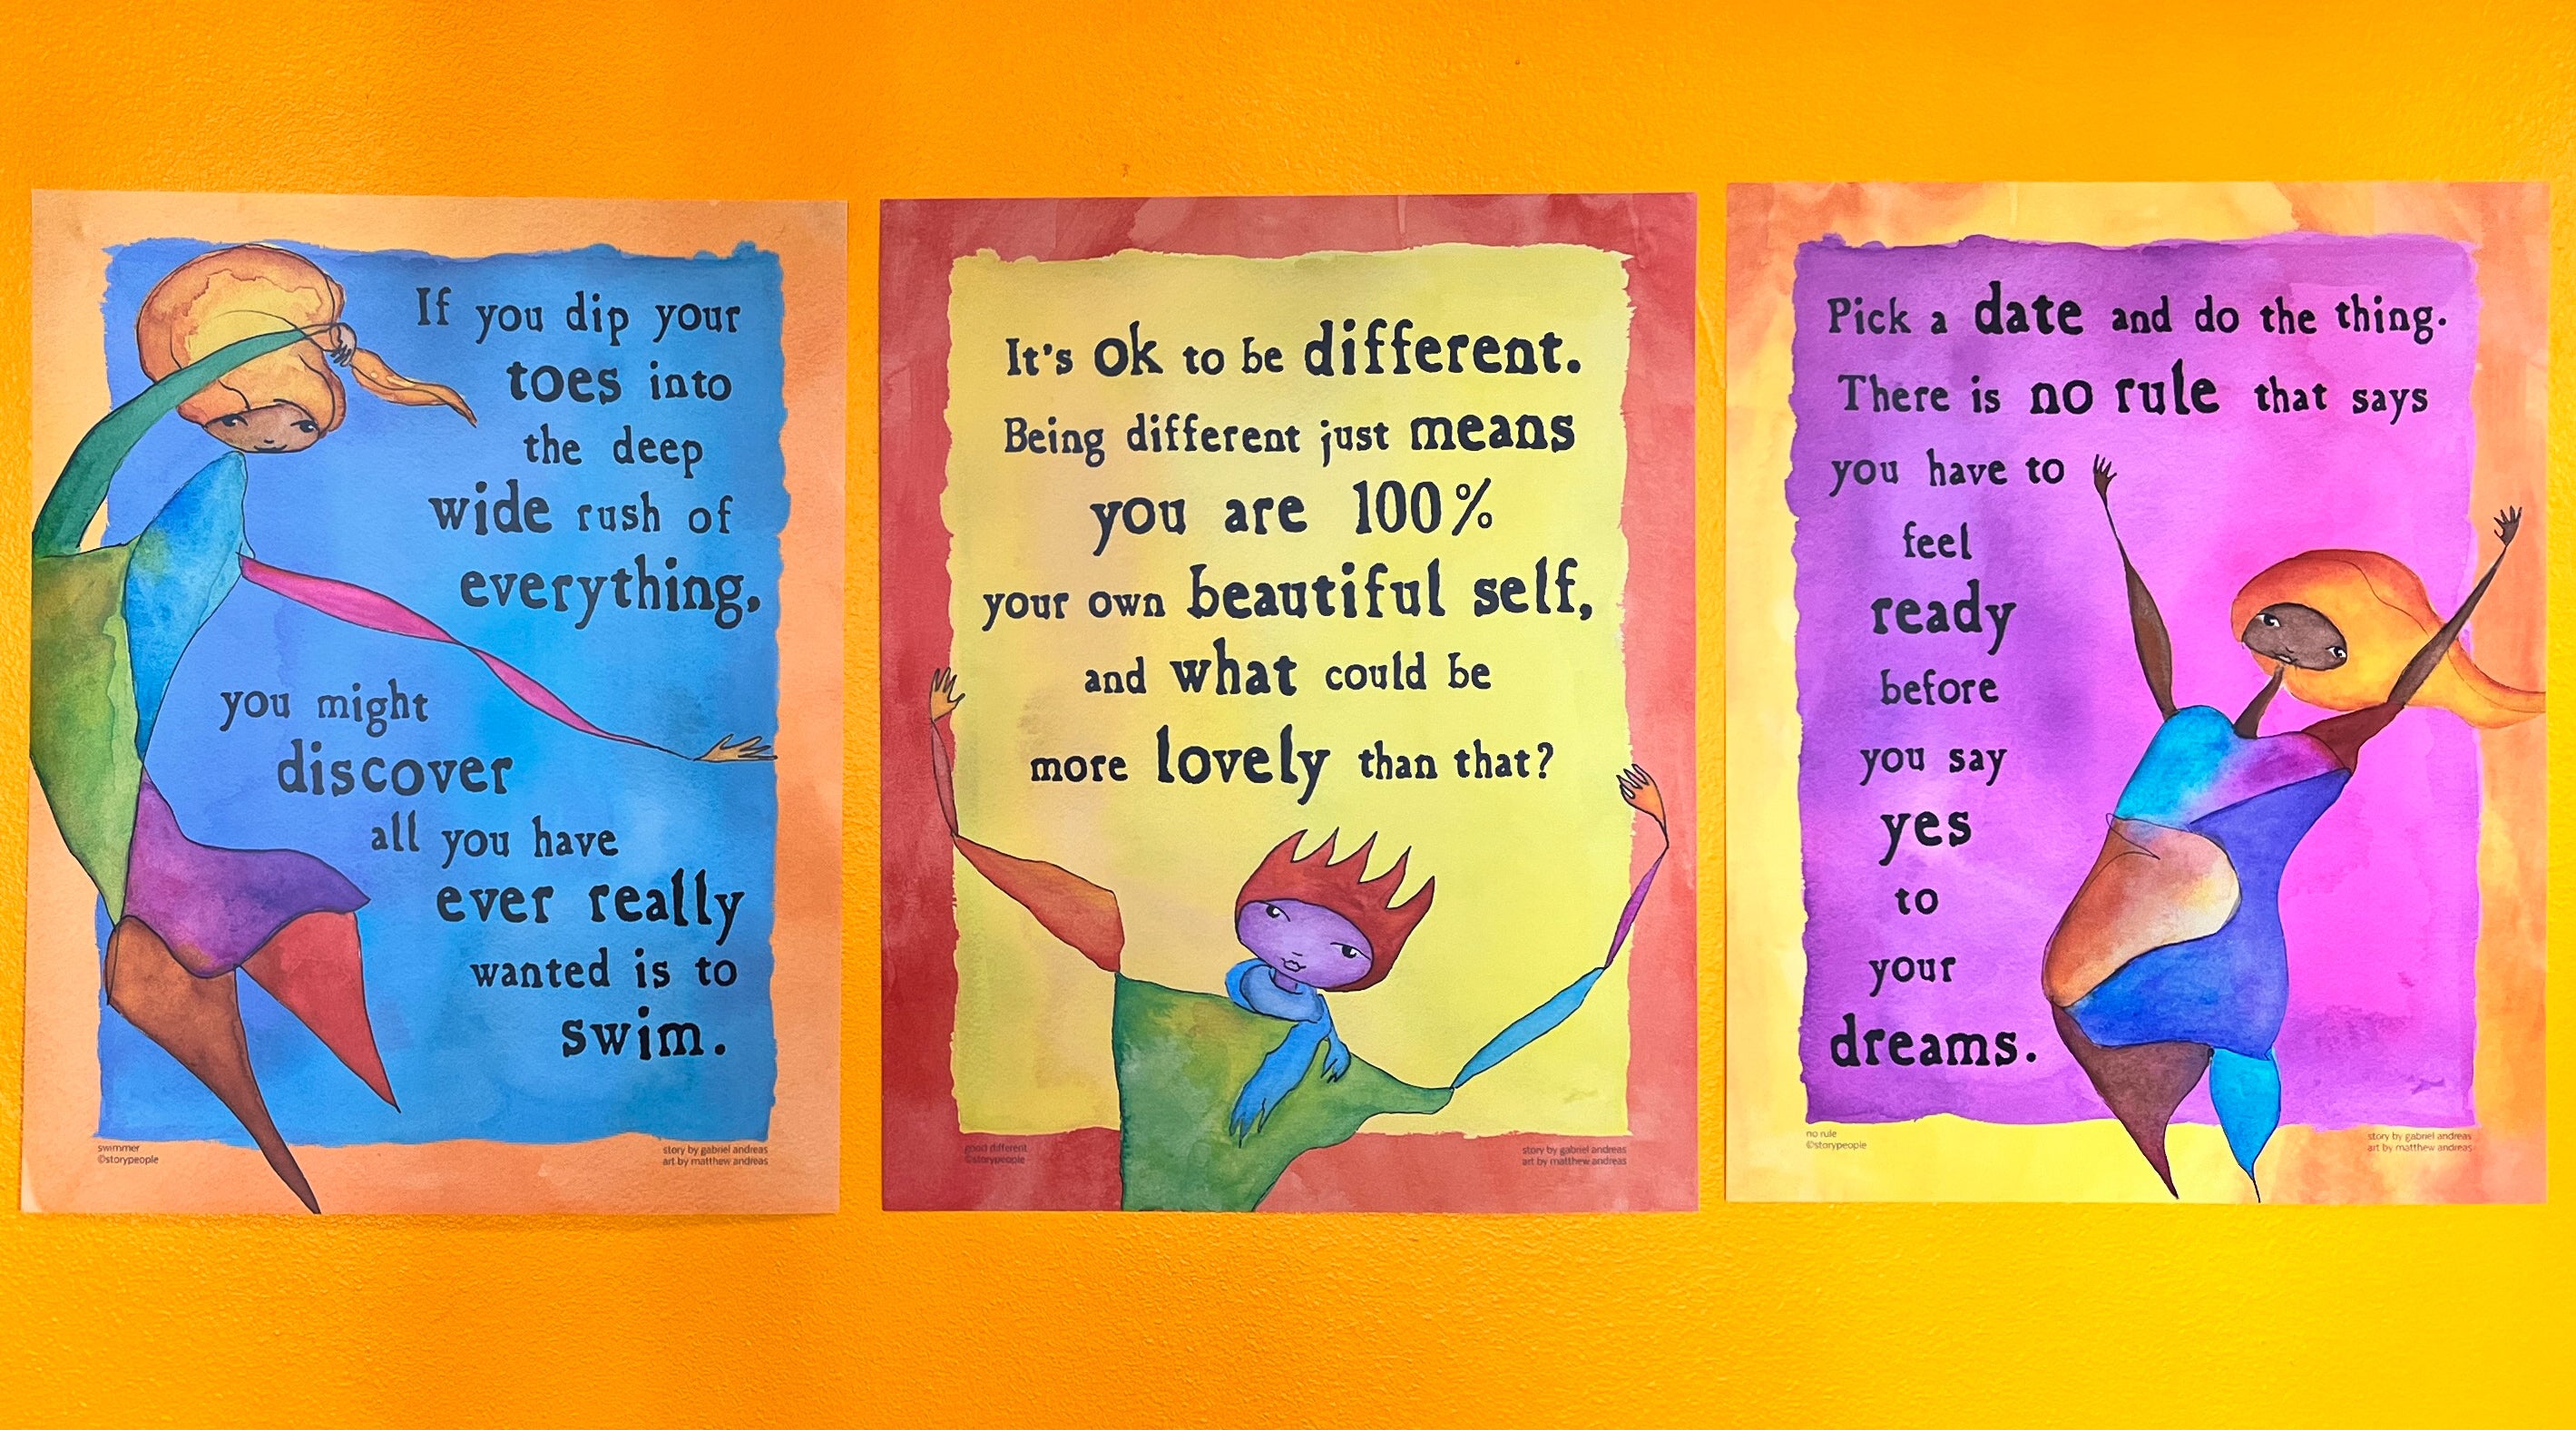 If you dip your
toes into
the deep
wide rush of
everything,
you might
discover
all you have
ever really
wanted is to
swim.
swimmer
©storypeople
story by gabriel andreas
art by matthew andreas
It's ok to be different.
Being different just means
you are 100%
your own beautiful self,
and what could be
more lovely than that?
good different
©storypeople
story by gabriel andreas
art by matthew andreas
Pick a date and do the thing.
There is no rule that says
you have to
feel
ready
before
you say
yes
to
your
dreams.
no rule
©storypeople
story by gabriel andreas
art by matthew andreas